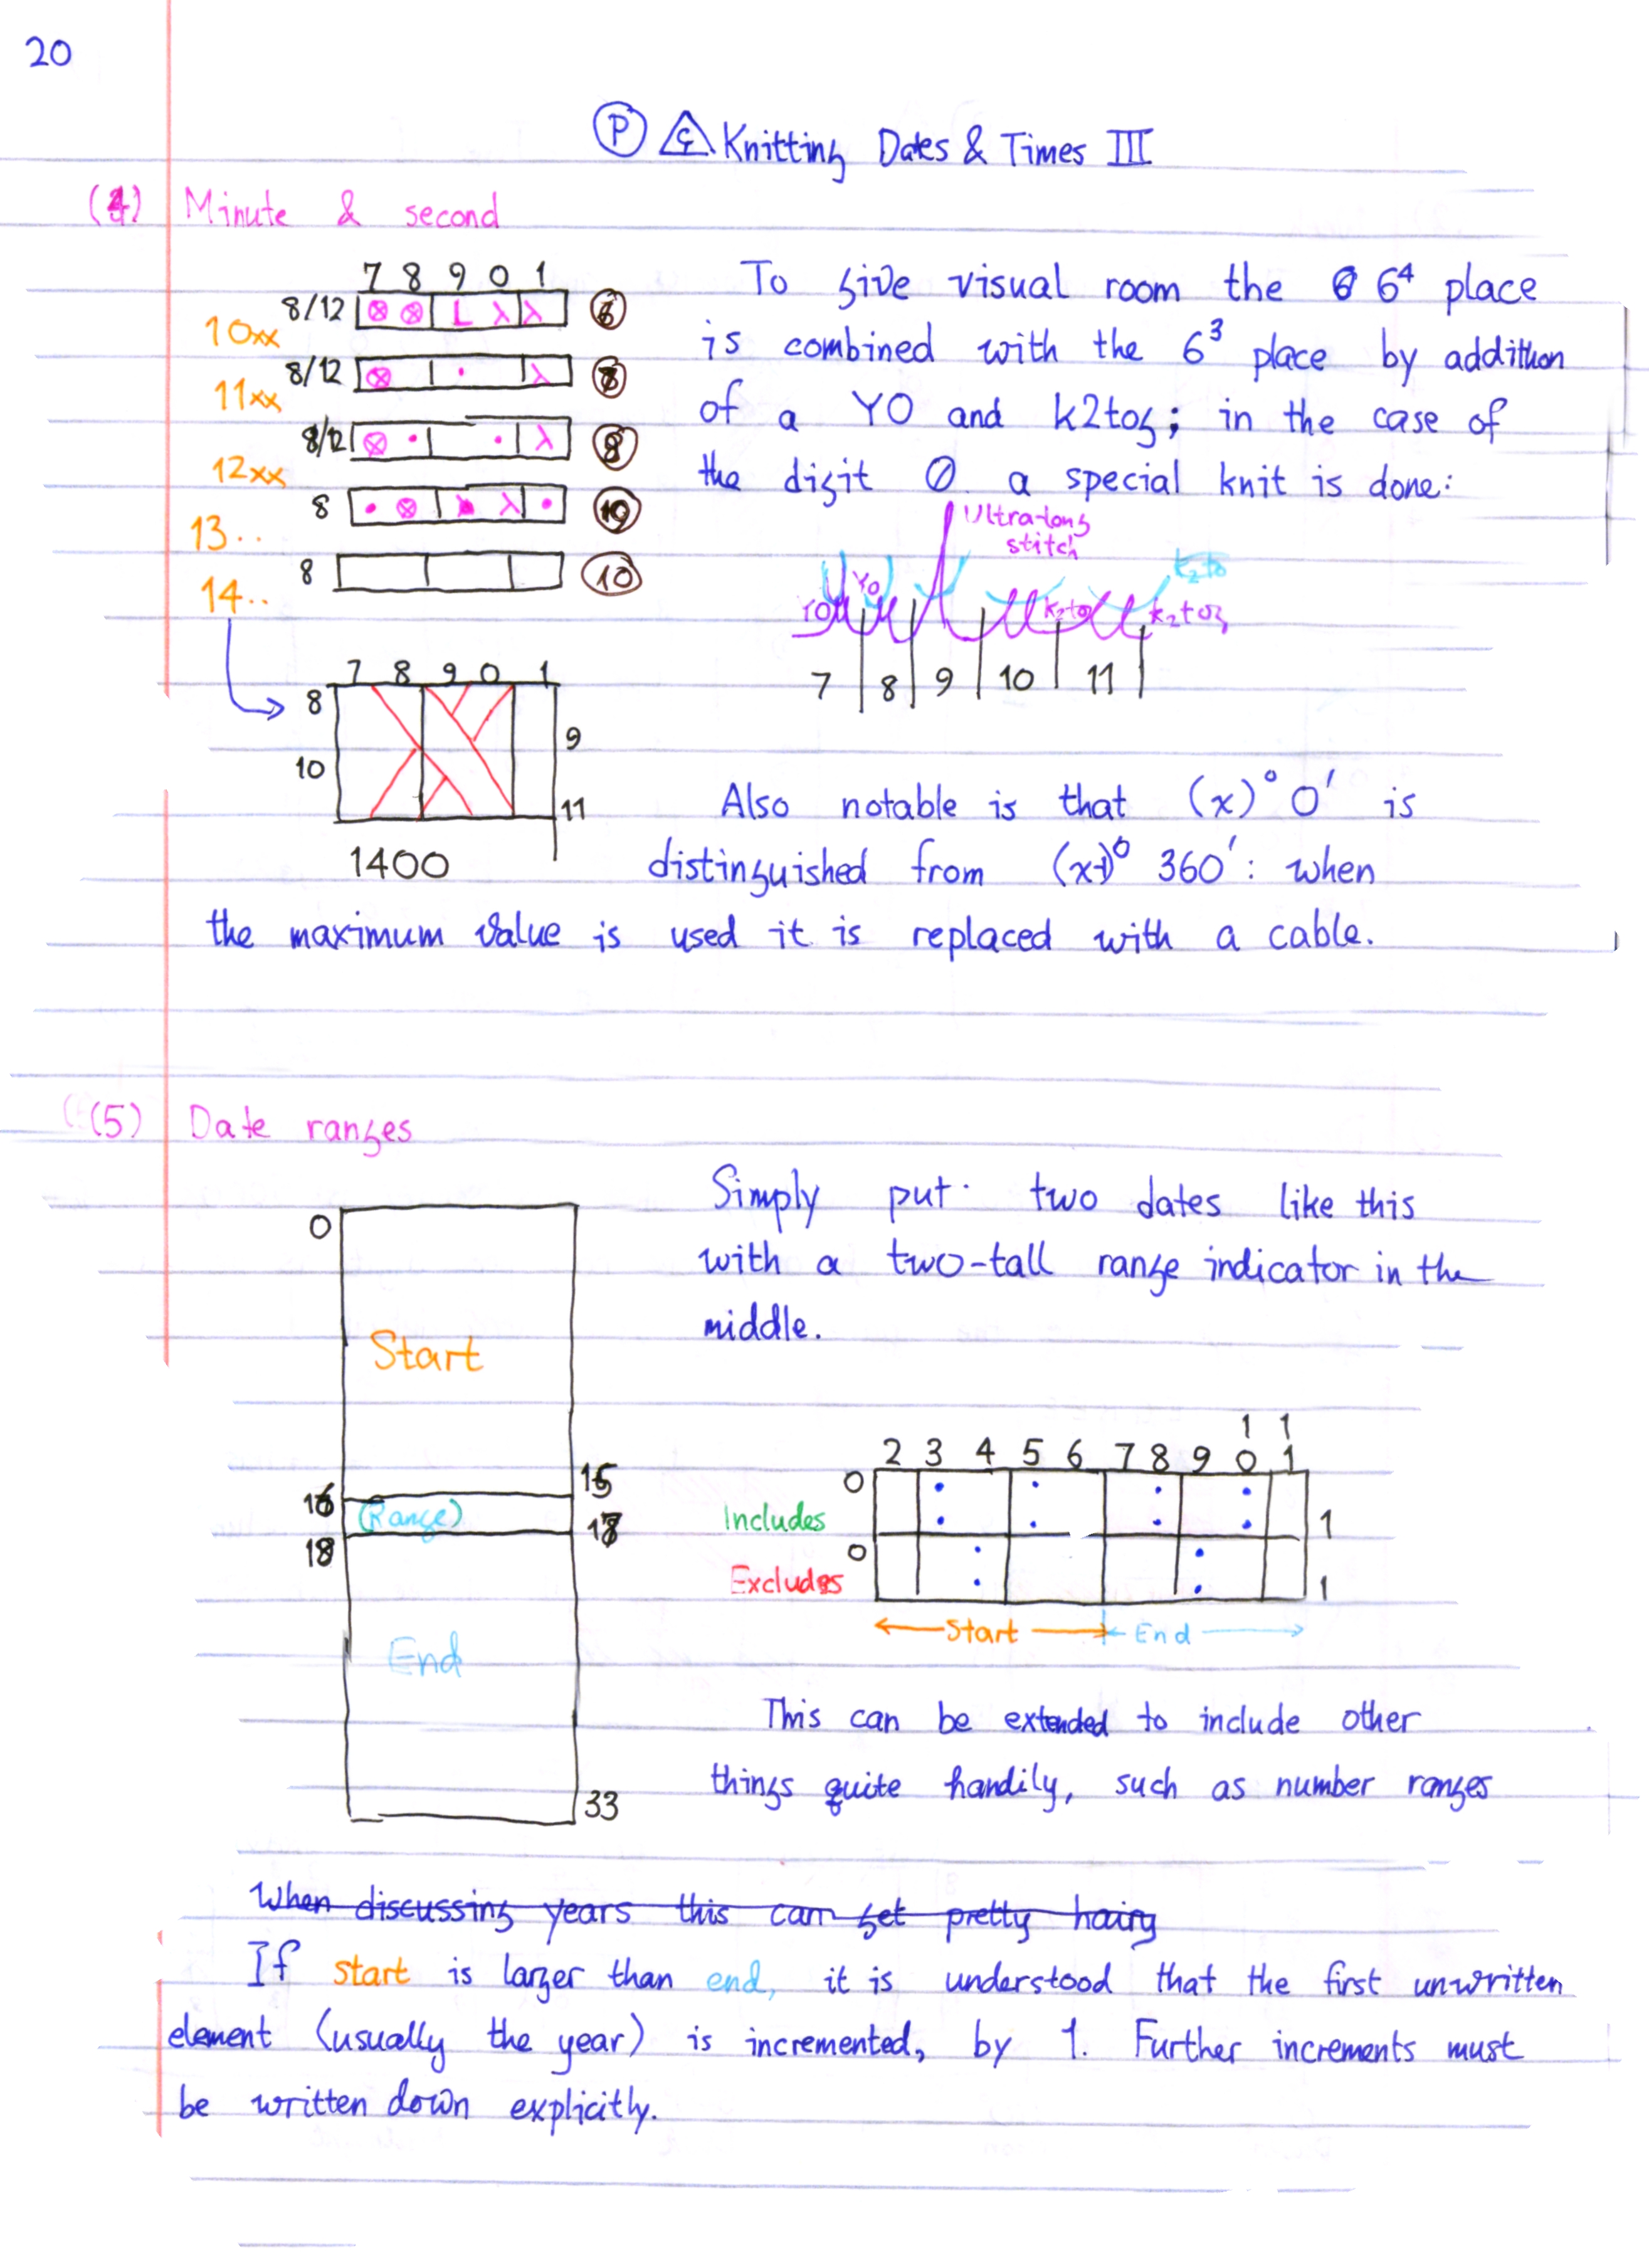 20
P Knitting Dates & Times III
(4) Minute & second
7 8 9 0 1
8/12 L λ λ
10xx
8/12 λ
11xx
8/12 λ
12xx
8 λ 10
13..
8 10
14..
To give visual room the 6⁴ place
is combined with the 6³ place by addition
of a YO and k2tog; in the case of
the digit 0 a special knit is done:
Ultra-long
stitch
YO k2tog k2tog
7 8 9 10 11
7 8 9 0 1
8
9
10
11
1400
Also notable is that (x)° 0′ is
distinguished from 360′: when
the maximum value is used it is replaced with a cable.
(5) Date ranges
Simply put two dates like this
with a two-tall range indicator in the
middle.
0
Start
15
16 (Range)
17
18
End
33
1 1
2 3 4 5 6 7 8 9 0 1
0
Includes 1
0
Excludes 1
Start End
This can be extended to include other
things quite handily, such as number ranges
When discussing years this can get pretty hairy
If start is larger than end, it is understood that the first unwritten
element (usually the year) is incremented, by 1. Further increments must
be written down explicitly.